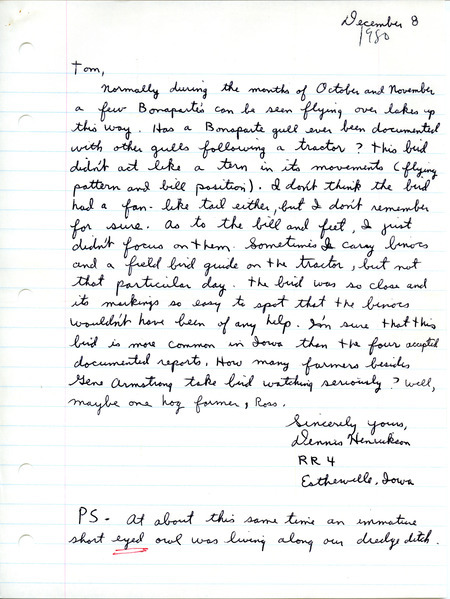 December 8
1980
Tom,
Normally during the months of October and November
a few Bonaparte's can be seen flying over lakes up
this way. Has a Bonaparte gull ever been documented
with other gulls following a tractor? This bird
didn't act like a tern in its movements (flying
pattern and bill position). I don't think the bird
had a fan-like tail either, but I don't remember
for sure. As to the bill and feet, I just
didn't focus on them. Sometimes I carry binocs
and a field bird guide on the tractor, but not
that particular day. The bird was so close and
its markings so easy to spot that the binocs
wouldn't have been of any help. I'm sure that this
bird is more common in Iowa than the four accepted
documented reports. How many farmers besides
Gene Armstrong take bird watching seriously? Well,
maybe one hog farmer, Ross.
Sincerely yours,
Dennis Henrikson
RR 4
Estherville, Iowa
PS - At about this same time an immature
short eyed owl was living along our dredge ditch.